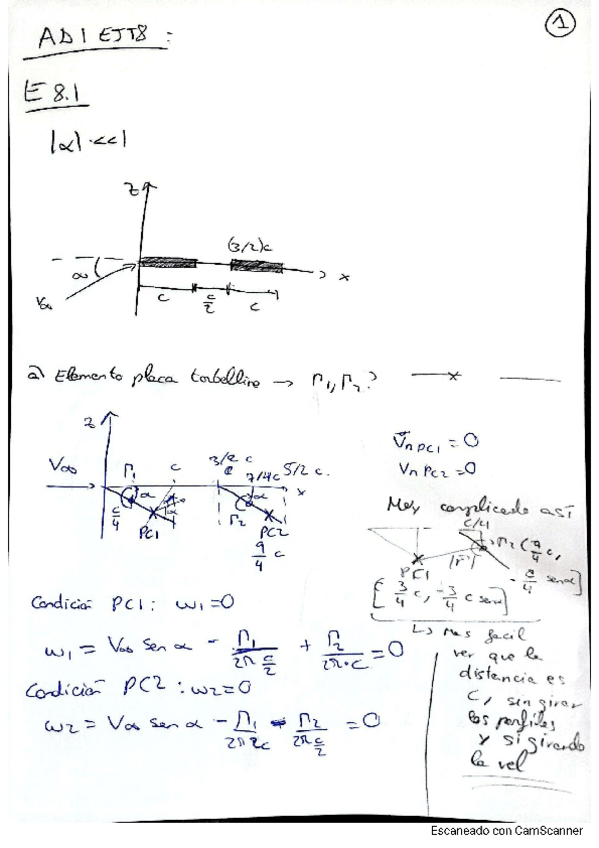 ①
AD1 EJT8:
E 8.1
|α| << 1
z
(3/2)c
α
x
V∞
c
c/2
c
a) Elemento placa torbellino → Γ1, Γ2?
z
V∞
Γ1
c
3/2 c
7/4c
5/2 c.
x
α
α
c/4
PC1
Γ2
PC2
9/4 c
VnPC1 = 0
VnPC2 = 0
Mas complicado así
c/4
PC1
|r|
[3/4 c, -3/4 c senα]
↳ Mas facil
ver que la
distancia es
c, sin girar
los perfiles
y si girando
la vel
Condición PC1: w1=0
w1 = V∞ sen α - Γ1/(2π c/2) + Γ2/(2π·c) = 0
Condición PC2: w2=0
w2 = V∞ sen α - Γ1/(2π2c) - Γ2/(2π c/2) = 0
Escaneado con CamScanner